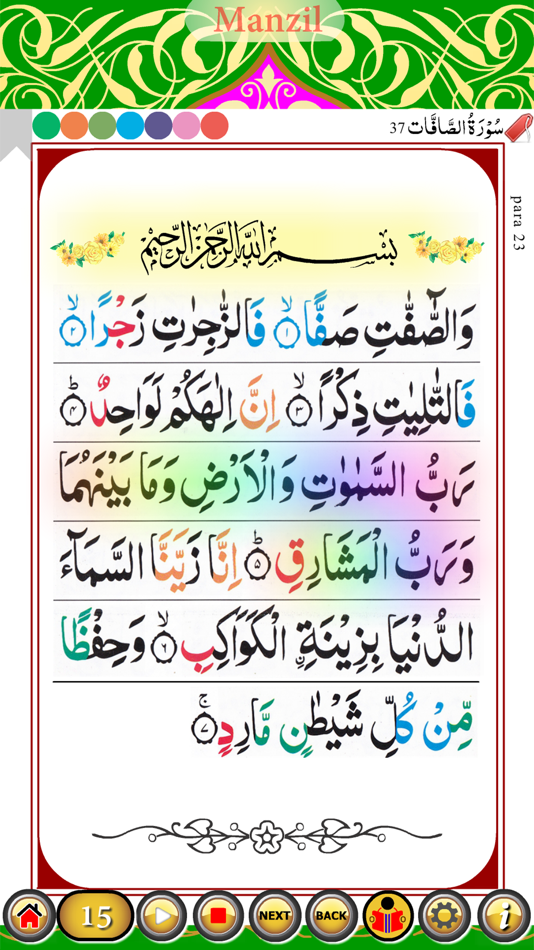 Manzil
سُوْرَةُ الصَّافَّات 37
para 23
بِسْمِ اللّٰهِ الرَّحْمٰنِ الرَّحِيْمِ
وَالصّٰٓفّٰتِ صَفًّاۙ۝۱ فَالزّٰجِرٰتِ زَجْرًاۙ۝۲
فَالتّٰلِيٰتِ ذِكْرًاۙ۝۳ اِنَّ اِلٰهَكُمْ لَوَاحِدٌؕ۝۴
رَبُّ السَّمٰوٰتِ وَالْاَرْضِ وَمَا بَيْنَهُمَا
وَرَبُّ الْمَشَارِقِؕ۝۵ اِنَّا زَيَّنَّا السَّمَآءَ
الدُّنْيَا بِزِيْنَةِ ۨالْكَوَاكِبِۙ۝۶ وَحِفْظًا
مِّنْ كُلِّ شَيْطٰنٍ مَّارِدٍۚ۝۷
15
NEXT
BACK
i